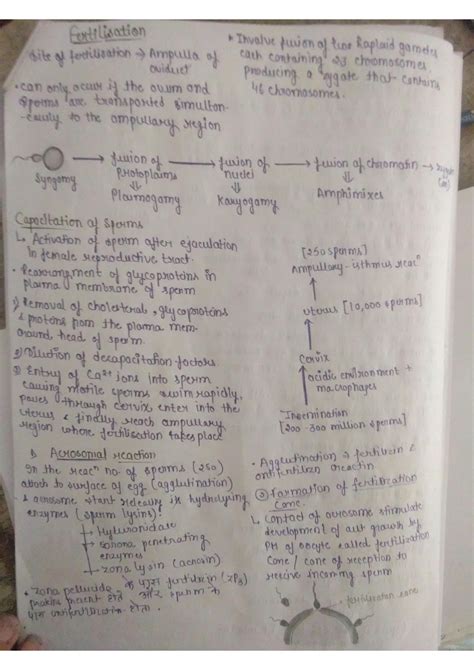 Fertilisation
Site of fertilisation → Ampulla of
oviduct
• can only occur if the ovum and
sperms are transported simultan-
-eously to the ampullary region
• Involve fusion of two haploid gametes
each containing 23 chromosomes
producing a zygote that contains
46 chromosomes.
→ fusion of → fusion of → fusion of chromatin →
Protoplasms nuclei
Syngamy
Plasmogamy Karyogamy Amphimixes
Capacitation of sperms
↳ Activation of sperm after ejaculation
in female reproductive tract.
• Rearrangment of glycoproteins in
plasma membrane of sperm
1) Removal of cholesterol, glycoproteins
& proteins from the plasma mem-
around head of sperm.
2) Dilution of decapacitation factors.
3) Entry of Ca²⁺ ions into sperm
causing motile sperms swim rapidly,
through cervix enter into the
uterus & finally reach ampullary
region where fertilisation takes place
[250 sperms]
Ampullary-isthmus
uterus [10,000 sperms]
Cervix
acidic environment +
macrophages
Insemination
[200-300 million sperms]
Acrosomal reaction
In the no. of sperms (250)
attach to surface of egg (agglutination)
& acrosome start releasing its hydrolysing
enzymes (sperm lysins)
→ Hyaluronidase
→ penetrating
enzymes
→ zona lysin (acrosin)
• zona pellucida के fertilizin (ZP3)
present होते और sperm के
• Agglutination → fertilizin &
antifertilizin
② Formation of fertilization
cone.
↳ Contact of acrosome stimulate
development of out growth by
PM of oocyte called fertilization
cone / cone of reception to
receive incoming sperm
→ fertilisation cone